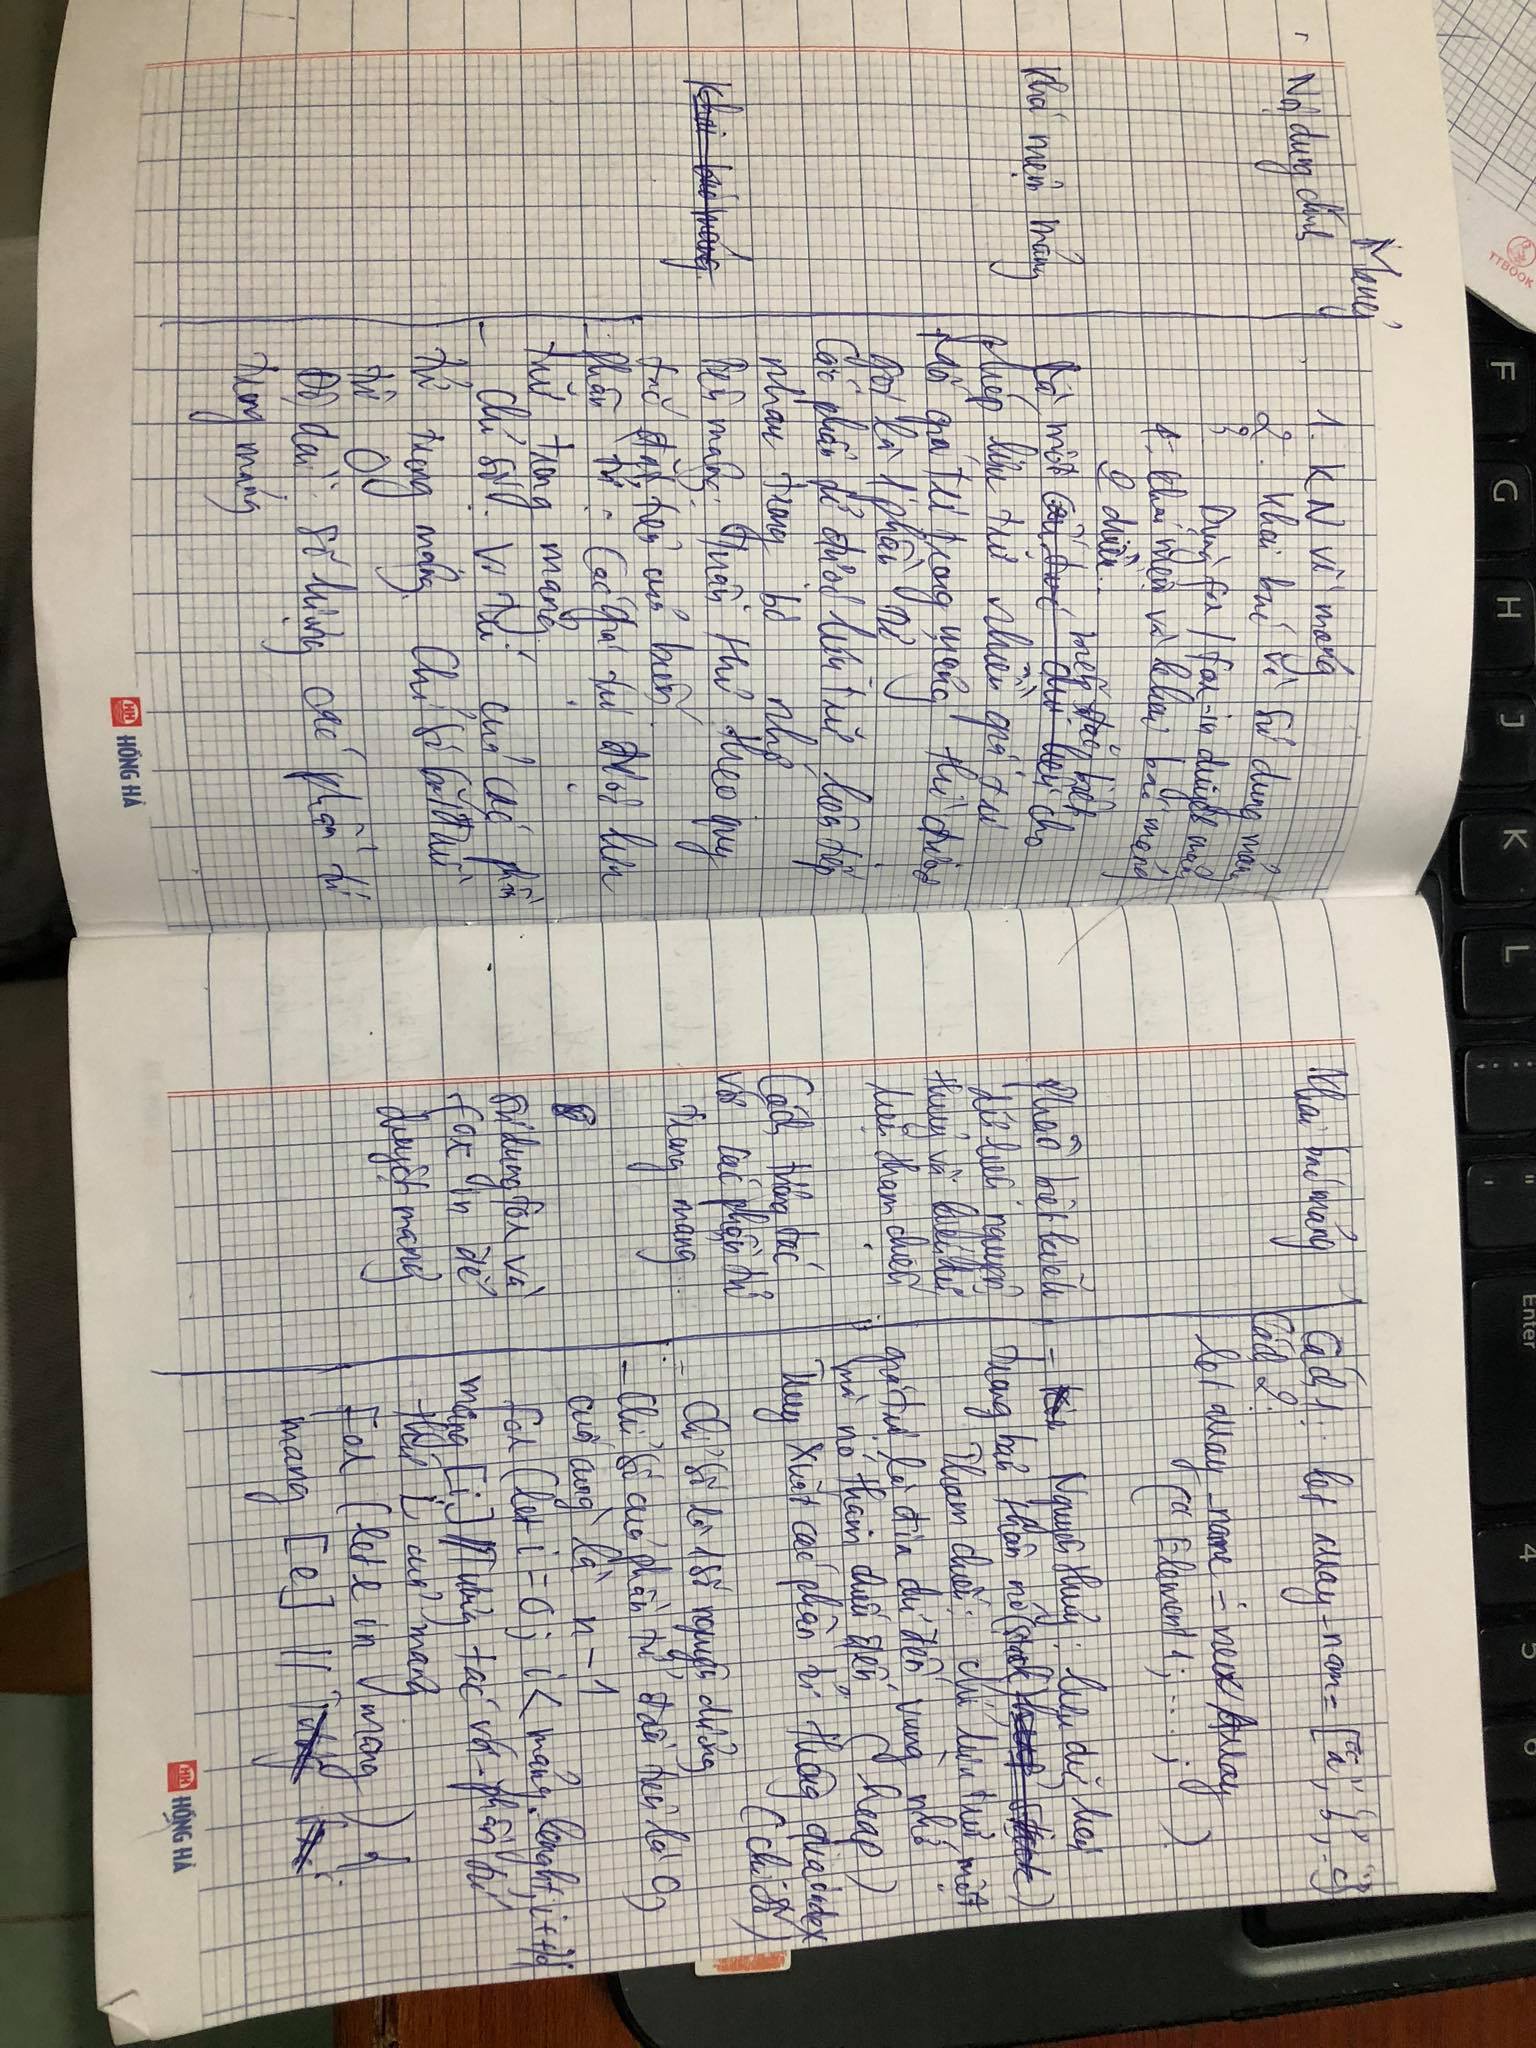 Mảng
Nội dung chính
1. KN về mảng
2. Khai báo và sử dụng mảng
3. Dùng for / for-in duyệt mảng
Khái niệm mảng
Là một biến đặc biệt
phép lưu trữ nhiều giá trị
Mỗi giá trị trong mảng thì được
gọi là 1 phần tử
Các phần tử được lưu trữ liên tiếp
nhau trong bộ nhớ
Tên mảng: Tuân thủ theo quy
tắc đặt tên của biến.
Phần tử: Các giá trị được lưu
trữ trong mảng
- Chỉ số: Vị trí của các phần
tử trong mảng. Chỉ số bắt đầu
từ 0
Độ dài: số lượng các phần tử
trong mảng
HỒNG HÀ
Khai báo mảng
Cách 1: let array-nam = ["a", "b", "c"]
Cách 2:
let array_name = new Array
(Element 1, ...., )
Phân biệt biến
dữ liệu nguyên
thủy và biến dữ
liệu tham chiếu
- Nguyên thủy: lưu dữ liệu
trong bản thân nó (stack)
Tham chiếu: chỉ lưu trữ một
giá trị là địa chỉ đến vùng nhớ
mà nó tham chiếu đến (heap)
Cách thao tác
với các phần tử
trong mảng
Truy xuất các phần tử thông qua index
(chỉ số)
- Chỉ số là 1 số nguyên dương
- Chỉ số của phần tử đầu tiên là 0,
cuối cùng là n-1
Sử dụng for và
for in để
duyệt mảng
for (let i = 0; i < mảng.lenght; i++){
mảng [i] // Tương tác với phần tử
thứ i của mảng
For (let e in mảng) {
mảng [e] //
HỒNG HÀ
TTBOOK
F
G
H
J
K
L
Enter
4
5
6